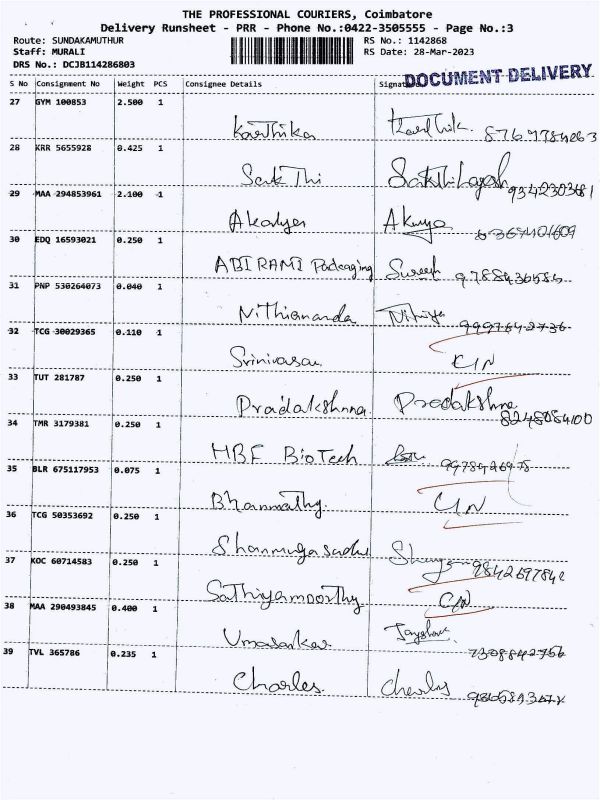 THE PROFESSIONAL COURIERS, Coimbatore
Delivery Runsheet - PRR - Phone No.:0422-3505555 - Page No.:3
Route: SUNDAKAMUTHUR RS No.: 1142868
Staff: MURALI RS Date: 28-Mar-2023
DRS No.: DCJB114286803
DOCUMENT DELIVERY
S No Consignment No Weight PCS Consignee Details Signature
27 GYM 100853 2.500 1
Karthika Karthik.
28 KRR 5655928 0.425 1
Sakthi
29 MAA 294853961 2.100 1
30 EDQ 16593021 0.250 1
ABIRAMI Packaging Suresh
31 PNP 530264073 0.040 1
Nithiananda
32 TCG 30029365 0.110 1
Srinivasan C/N
33 TUT 281787 0.250 1
Pradakshnna Pradakshna
8248084100
34 TMR 3179381 0.250 1
HBF BioTech
35 BLR 675117953 0.075 1
Bhanmathy C/N
36 TCG 50353692 0.250 1
Shanmugasadu
37 KOC 60714583 0.250 1
Sathiyamoorthy C/N
38 MAA 290493845 0.400 1
Umasankar
7308842756
39 TVL 365786 0.235 1
Charles Charles